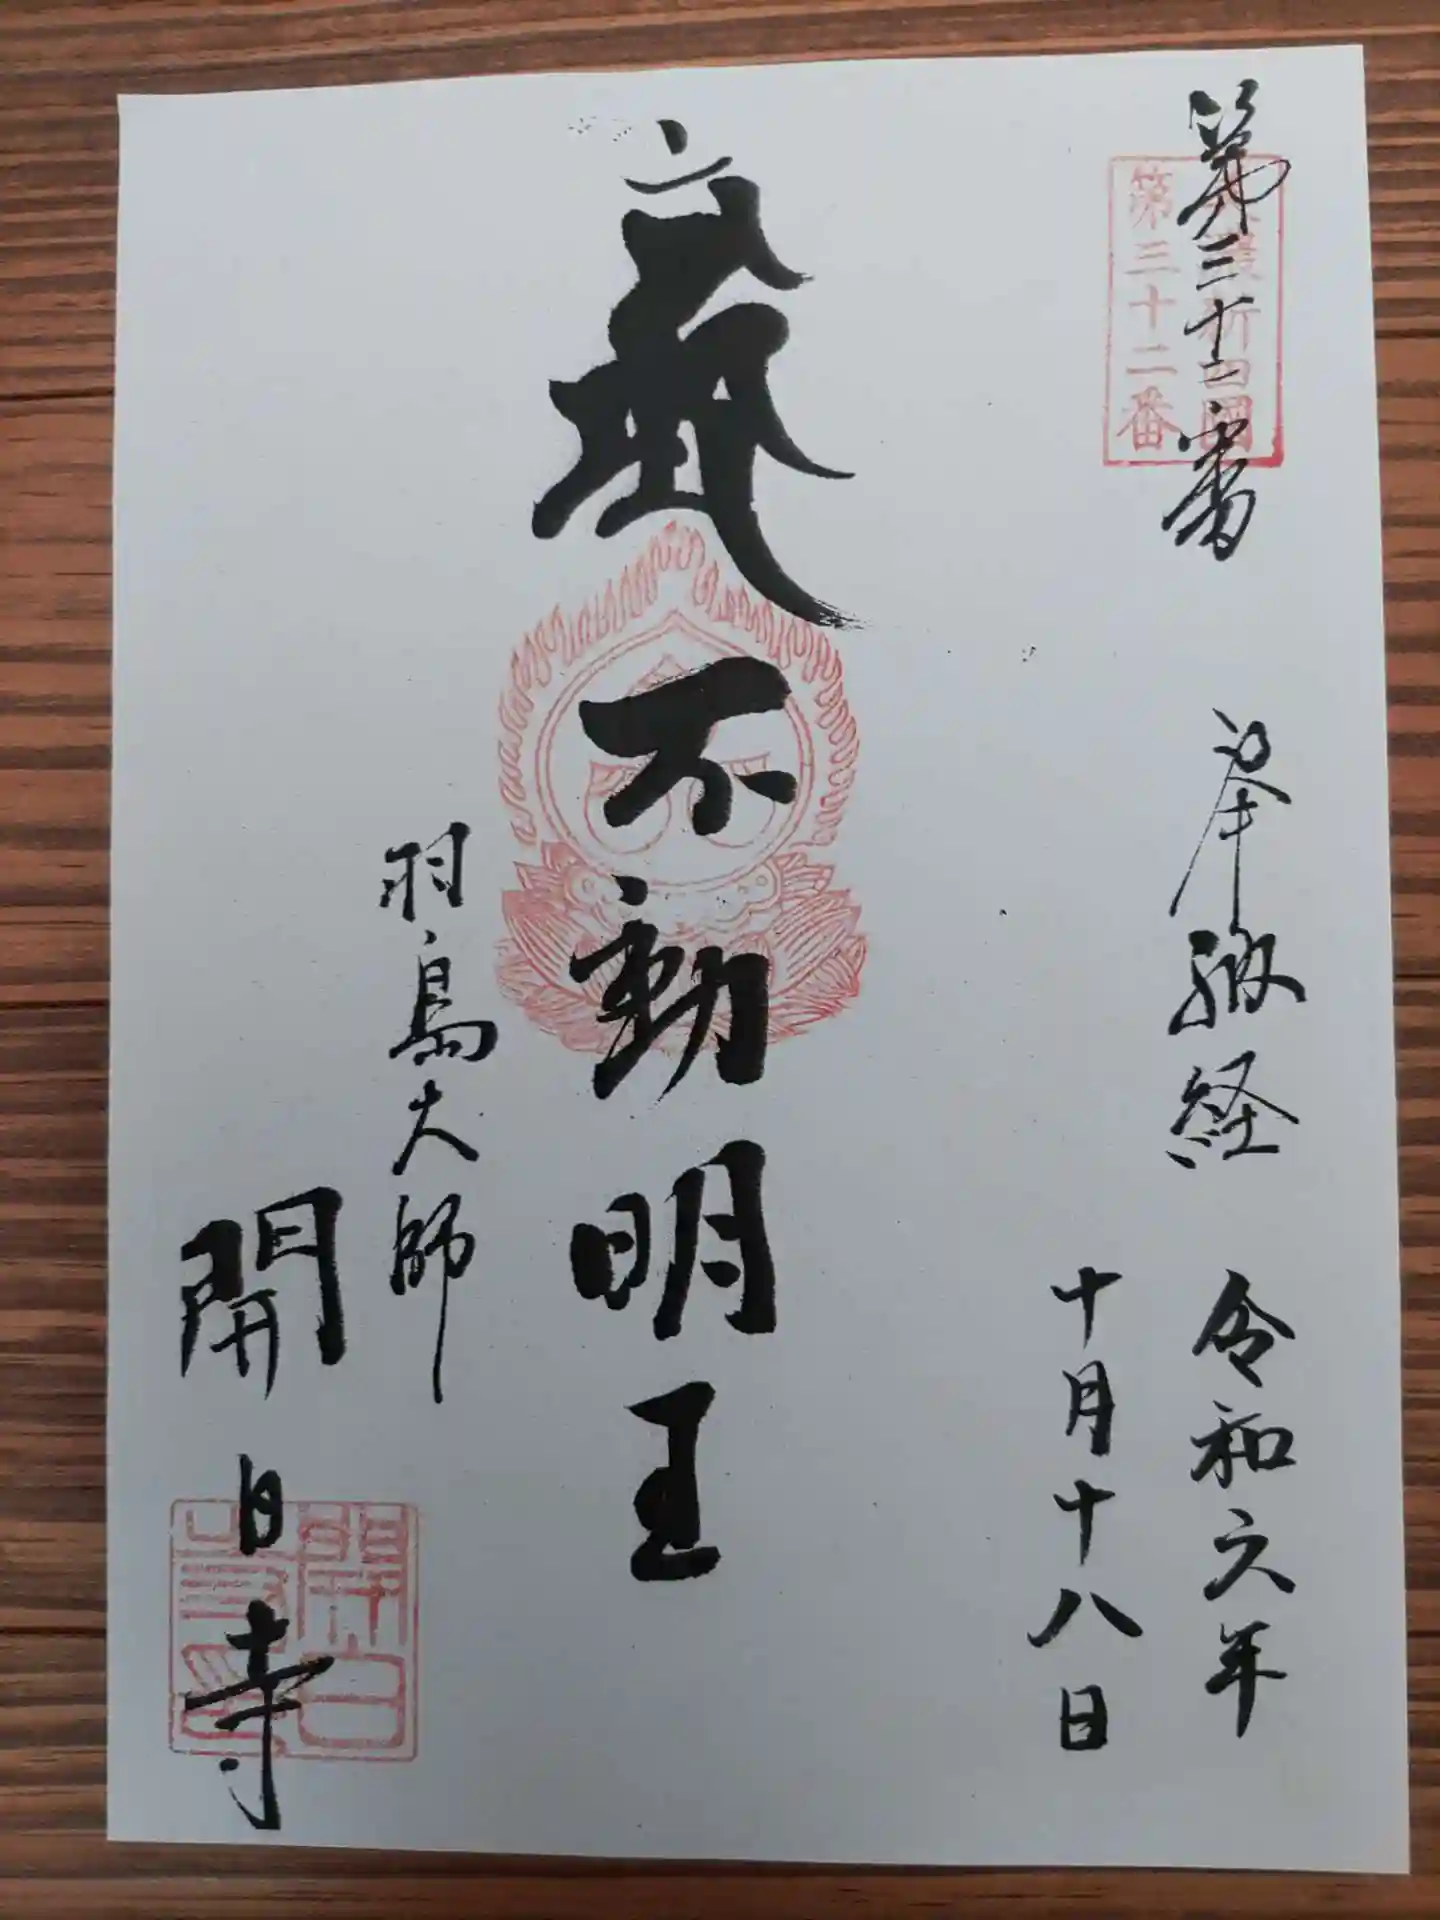 第三十二番
奉納経
令和六年
十月十八日
不動明王
羽島大師
開白寺
新四國
第三十二番
開白寺印